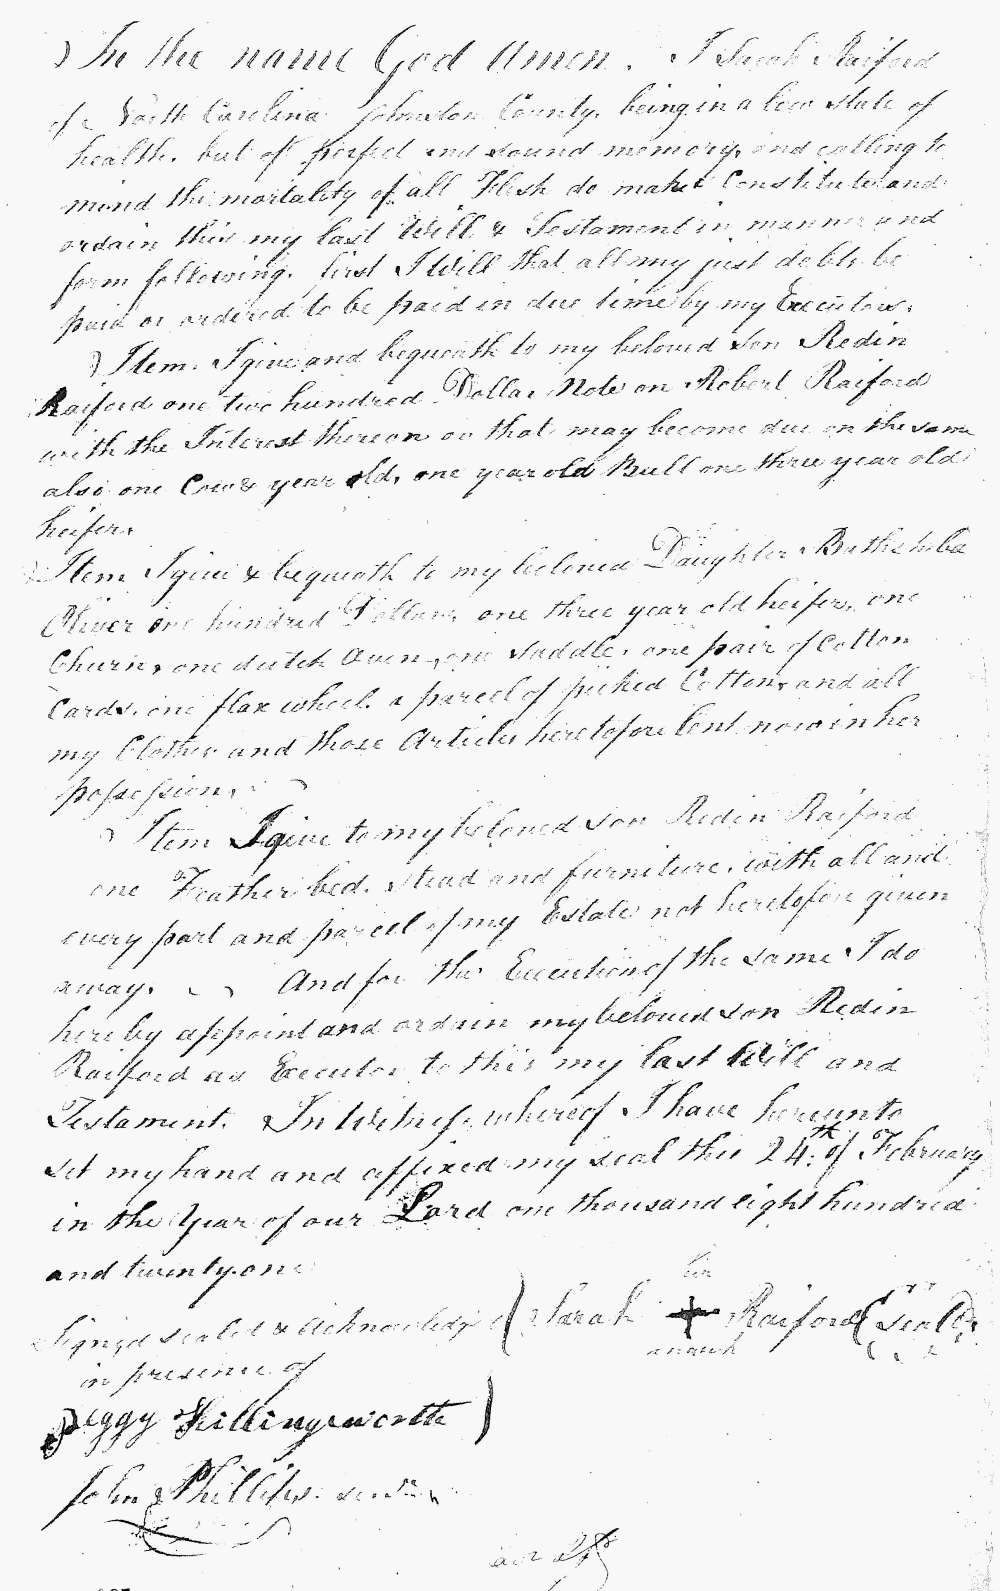 In the name God Amen. I Sarah Raiford
of North Carolina Johnston County, being in a low state of
health, but of perfect and sound memory, and calling to
mind the mortality of all Flesh do make Constitute and
ordain this my last Will & Testament in manner and
form following. first I Will that all my just debts be
paid or ordered to be paid in due time by my Executors.
Item. I give and bequeath to my beloved Son Redin
Raiford one two hundred Dollar Note on Robert Raiford
with the Interest thereon or that may become due on the same
also one Cow 8 year old, one year old Bull one three year old
heifer.
Item I give & bequeath to my beloved Daughter Bathsheba
Oliver one hundred Dollars, one three year old heifer, one
Churn, one dutch Oven, one saddle, one pair of Cotton
Cards, one flax wheel. a parcel of picked Cotton, and all
my Clothes and those Articles heretofore lent now in her
possession.
Item I give to my beloved son Redin Raiford
one Feather bed. stead and furniture, with all and
every part and parcel of my Estate not heretofore given
away. And for the Execution of the same I do
hereby appoint and ordain my beloved son Redin
Raiford as Executor to this my last Will and
Testament. In Witness whereof I have hereunto
set my hand and affixed my seal this 24th of February
in the Year of our Lord one thousand eight hundred
and twenty one
her
Signed sealed & acknowledged Sarah + Raiford (Seal)
in presence of
Peggy Killingsworth
John Phillips